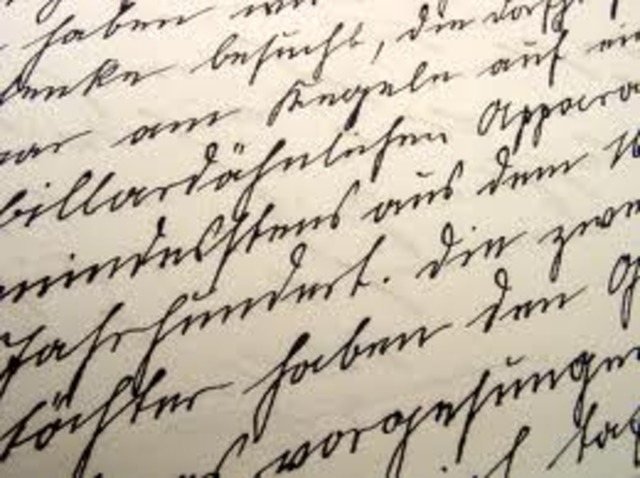 haben wi
enke besucht, die dort
war am Kegeln auf ein
billardähnlichen Appara
mindestens aus dem 16
Jahrhundert. Die zwe
töchter haben den G
vorgesungen